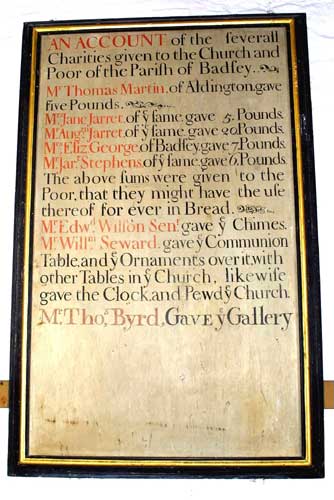 AN ACCOUNT of the ſeverall
Charities given to the Church and
Poor of the Pariſh of Badſey.
Mr Thomas Martin, of Aldington, gave
five Pounds.
Mrs Jane Jarret, of ye ſame, gave 5. Pounds.
Mr Augn Jarret of ye ſame, gave 20. Pounds.
Mrs Eliz George, of Badſey, gave 7. Pounds.
Mr Jars Stephens, of ye ſame, gave 6. Pounds
The above ſums were given to the
Poor, that they might have the uſe
thereof for ever in Bread.
Mr Edwd Wilſon Senr gave ye Chimes.
Mr Willm Seward, gave ye Communion
Table, and ye Ornaments over it, with
other Tables in ye Church, likewiſe
gave the Clock, and Pewd ye Church.
Mr Thos Byrd, Gave ye Gallery